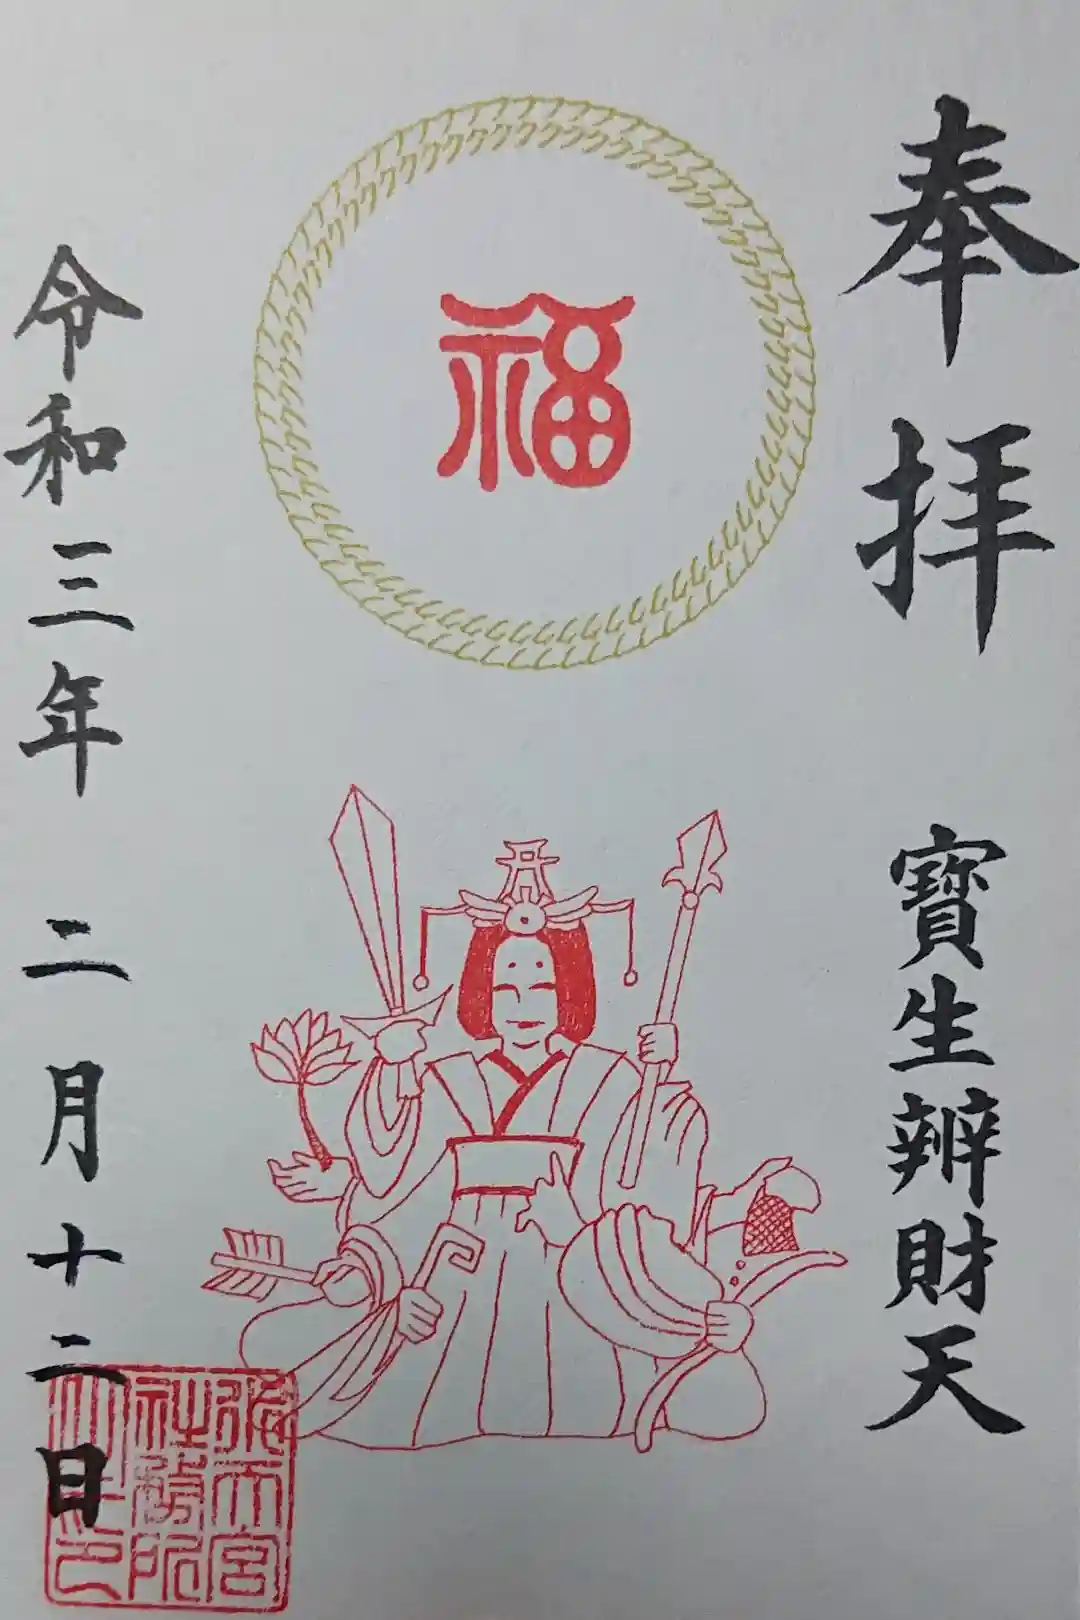 奉拝
寶生辨財天
福
令和三年 二月十二日
社務所